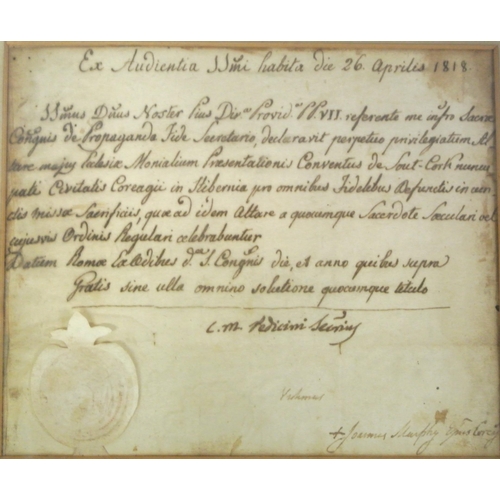 Ex Audientia SSmi habita die 26. Aprilis 1818.
SSmus Dnus Noster Pius Divâ Providâ PP. VII. referente me infrō Sacræ
Congñis de Propaganda Fide Secretario, declaravit perpetuo privilegiatum Al-
tare majus Eclesiæ Monialium Præsentationis Conventus de Sout-Cork nuncu
pati Civitatis Coreagii in Hibernia pro omnibus Fidelibus defunctis in cun
ctis missæ Sacrificiis, quæ ad idem Altare a quocumque Sacerdote Sæculari vel
cujusvis Ordinis Regulari celebrabuntur
Datum Romæ Ex Ædibus d. S. Congñis die, et anno quibus supra
Gratis sine ulla omnino solutione quocumque titulo
C. M. Pedicini Secrius
+ Joannes Murphy Epus